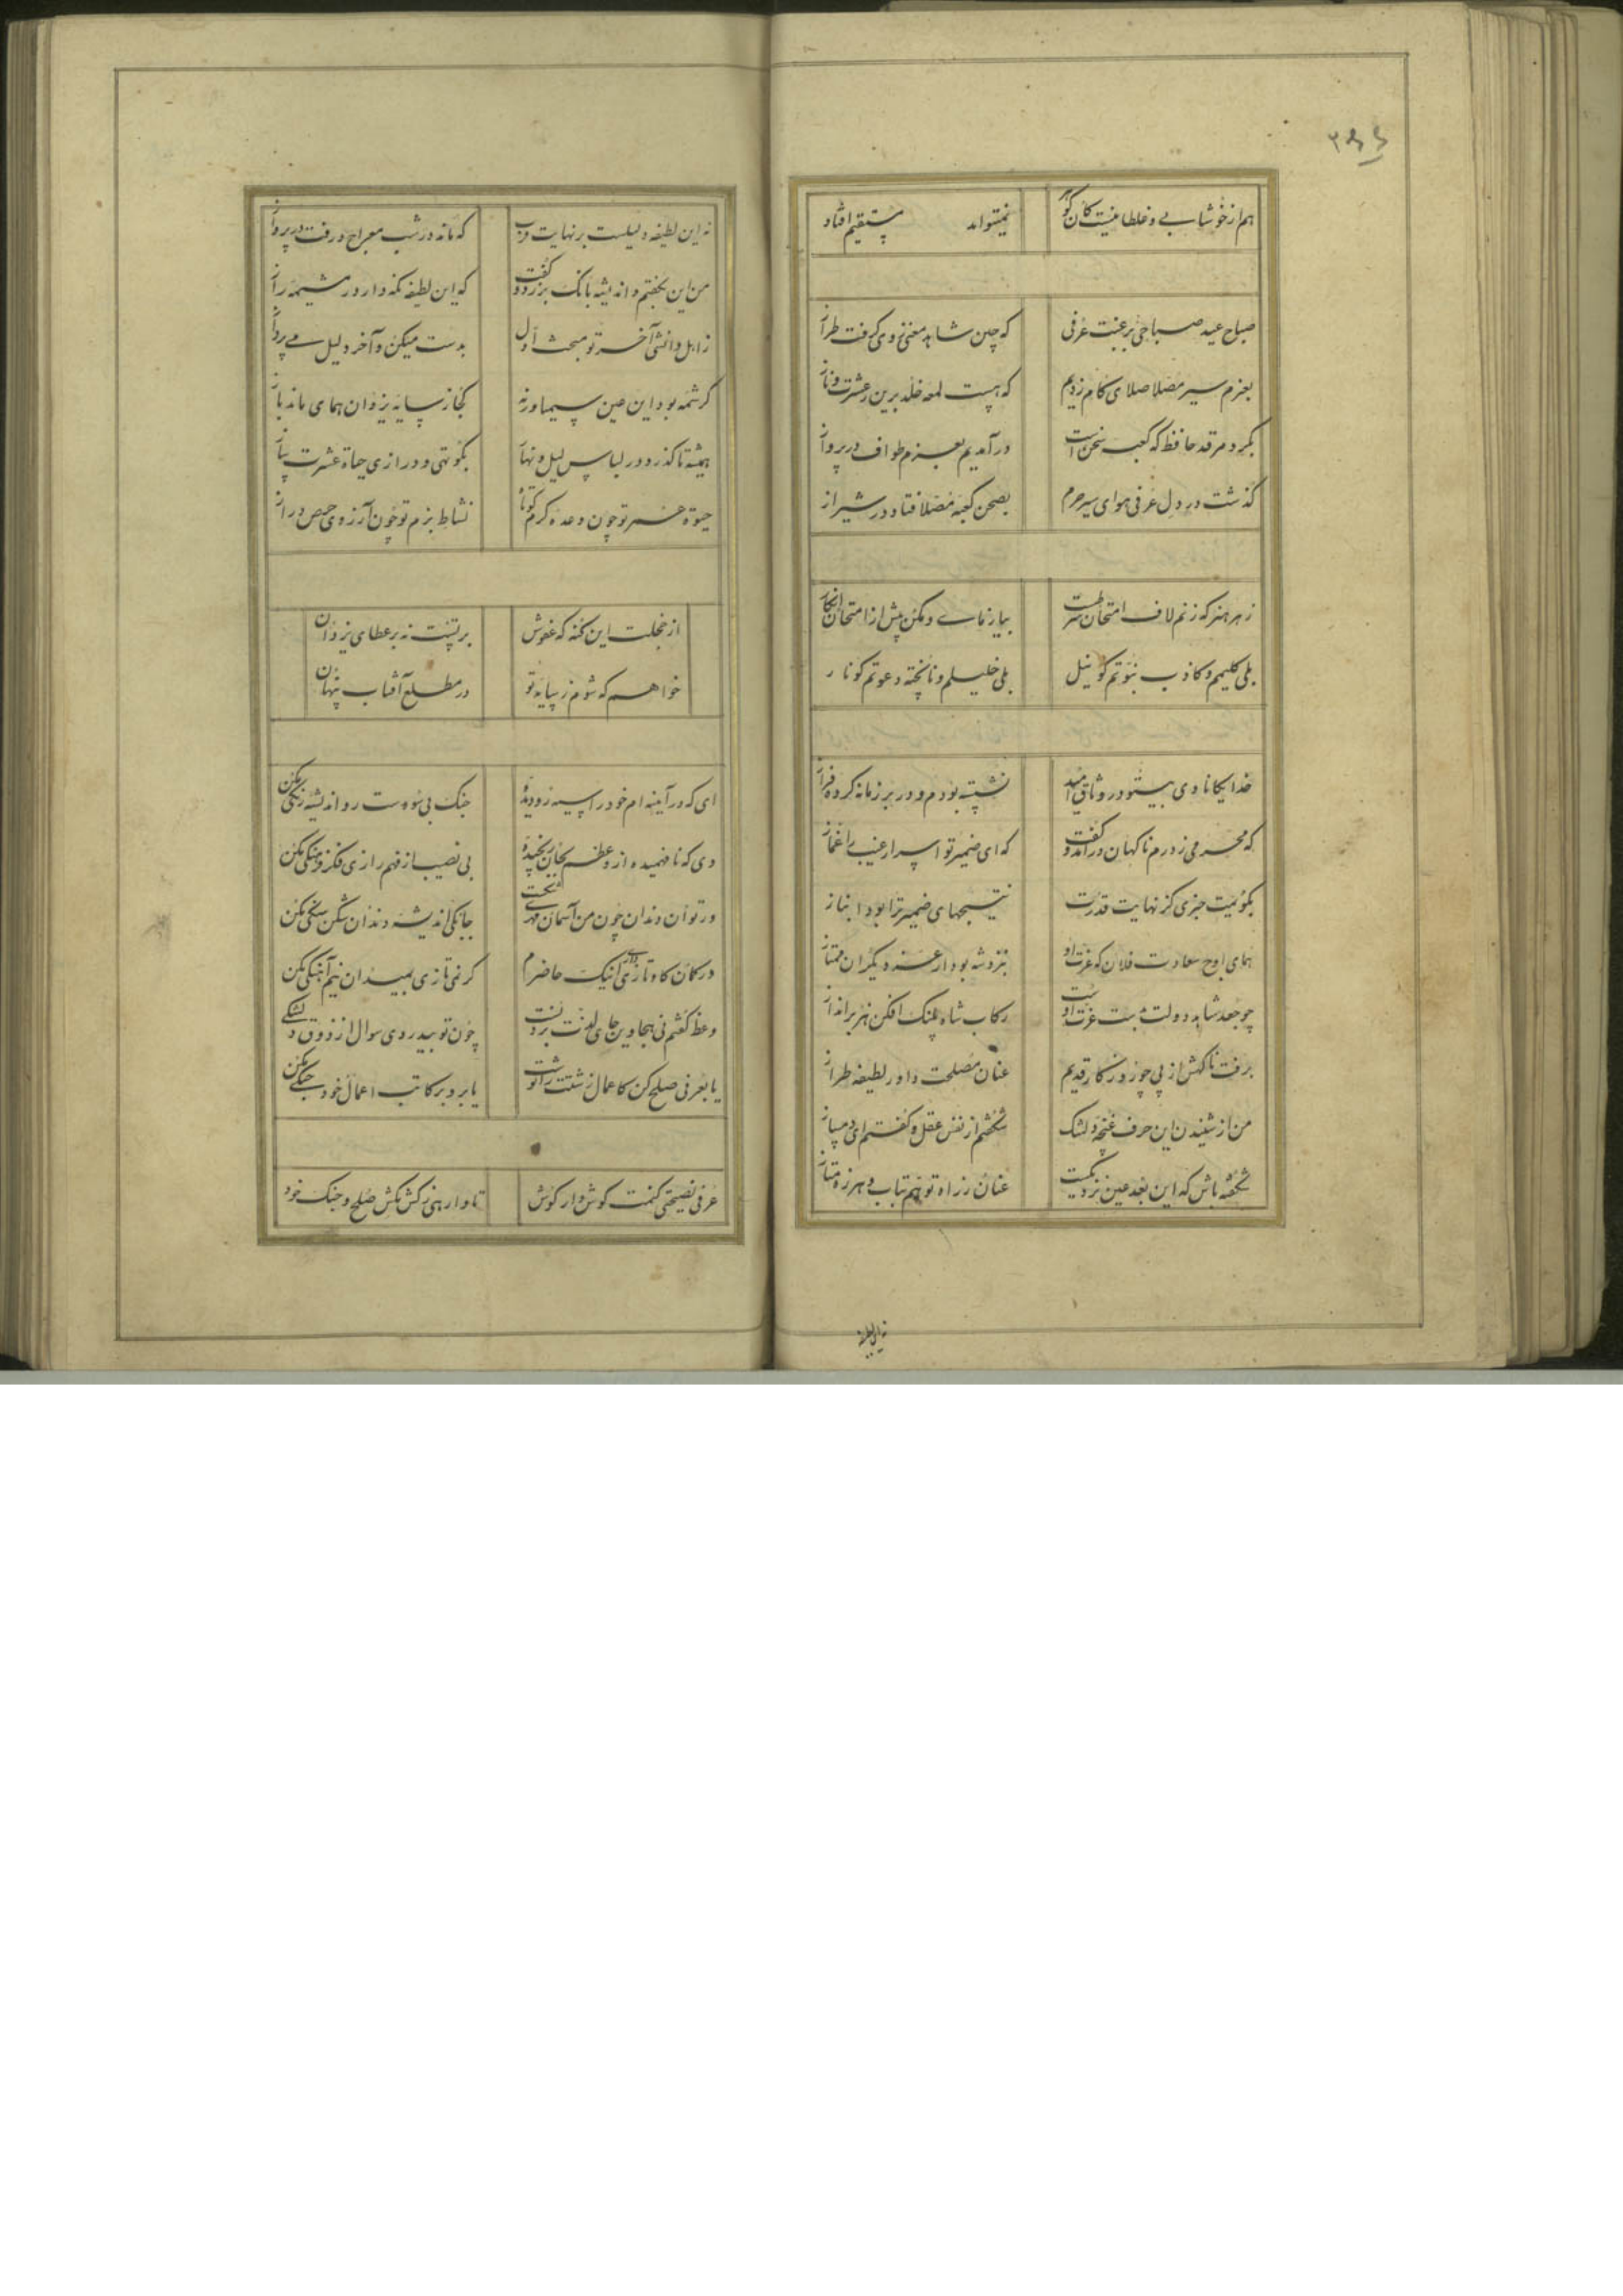 هم از خوشابی و غلطانیست کان گوهر نمیتواند مستقیم افتاد
صباح عید صباحی برغبت عرفی که چین شاهد معنی ز وی گرفت طراز
بعزم سیر مصلا صلای کام زدیم که هست لمعه خلد برین ز عشرت و ناز
بگرد مرقد حافظ که کعبه سخن است در آمدیم بعزم طواف در پرواز
گذشت در دل عرفی هوای سیر حرم بصحن کعبه مصلا فتاد در شیراز
ز هر هنر که زنم لاف امتحان شرطست بیازمای و مکن پیش از امتحان انکار
بلی کلیمم و کاذب نبوتم کو نیل بلی خلیلم و ناپخته دعوتم کو نار
خدایگانا دی بیتو در وثاق امید نشسته بودم و در بر زمانه کرده فراز
که محرمی ز درم ناگهان درآمد و گفت که ای ضمیر تو اسرار غیب را غماز
بگویمت خبری کز نهایت قدرت نتیجهای ضمیر ترا بود انباز
همای اوج سعادت فلان که عزت او
چو جعد شاهد دولت بدست عزت اوست رکاب شاه پلنگ افکن هزبر انداز
برفت ناگهش از پی چو روزگار قدیم عنان مصلحت داور لطیفه طراز
من از شنیدن این حرف غنچه دلتنگ شگفتم از نفس عقل و گفتم ای دمساز
شگفته باش که این بعد عین نزدیکیست عنان ز راه توهم بتاب و هرزه متاز
نه این لطیفه
نه این لطیفه دلیلست بر نهایت قرب که ماند در شب معراج و رفت در پرواز
من این بگفتم و اندیشه بانگ بر زد و گفت که این لطیفه نگه دار در مشیمه راز
ز اهل دانشی آخر تو مبحث اول بدست میکن و آخر دلیل می پرداز
کرشمه بود این عین سیمیا ورنه کجا ز سایه یزدان همای ماند باز
همیشه تا گذرد در لباس لیل و نهار بکوتهی و درازی حیاة عشرت ساز
حیوة خصم تو چون وعده کرم کوتاه نشاط بزم تو چون آرزوی حرص دراز
از خجلت این گنه که عفوش بر تست نه بر عطای یزدان
خواهم که شوم ز سایه تو در مطلع آفتاب پنهان
ای که در آینه ام خود را سیه رو دیده جنگ بی سودست رو اندیشه رنگی بکن
دی که نافهمیده از وعظم بجان رنجیده بی نصیب از فهم رازی فکر فرهنگی بکن
در کمان کاوتازی اینک حاضرم گر نمی تازی بمیدان نیم آهنگی بکن
وعظ گفتم نی هجا وین جای لذت بردنست چون تو بیدردی سوال از ذوق دلتنگی
یا بعرفی صلح کن کاعمال زشتت را نوشت یا برو بر کاتب اعمال خود جنگی بکن
عرفی نصیحتی کنمت گوش دار گوش تا وارهی ز کش مکش صلح و جنگ خود